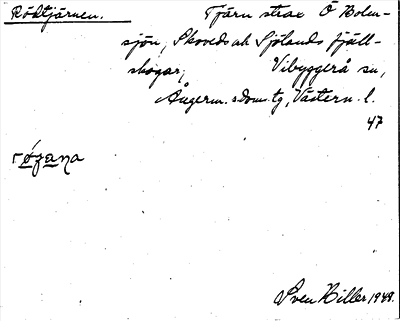 Rödtjärnen. Tjärn strax Ö Bolen-
sjön, Skoveds och Sjölands fjäll-
skogar, Vibyggerå sn,
Ångerm. s. doms. tg, Västern. l.
47
røʒana
Sven Hiller 1948.